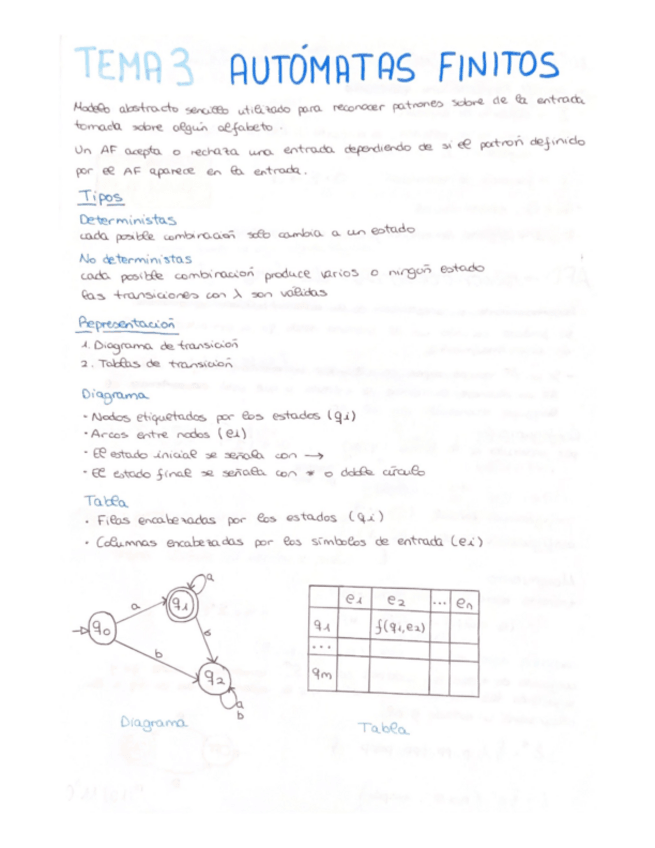 TEMA 3 AUTÓMATAS FINITOS
Modelo abstracto sencillo utilizado para reconocer patrones sobre de la entrada
tomada sobre algún alfabeto.
Un AF acepta o rechaza una entrada dependiendo de si el patrón definido
por el AF aparece en la entrada.
Tipos
Deterministas
cada posible combinación solo cambia a un estado
No deterministas
cada posible combinación produce varios o ningún estado
las transiciones con λ son válidas
Representación
1. Diagrama de transición
2. Tablas de transición
Diagrama
· Nodos etiquetados por los estados (qi)
· Arcos entre nodos (ei)
· El estado inicial se señala con →
· El estado final se señala con * o doble círculo
Tabla
· Filas encabezadas por los estados (qi)
· Columnas encabezadas por los símbolos de entrada (ei)
a
q1
a
q0
b
b
q2
a
b
Diagrama
e1 e2 ... en
q1 f(q1,e2)
...
qm
Tabla